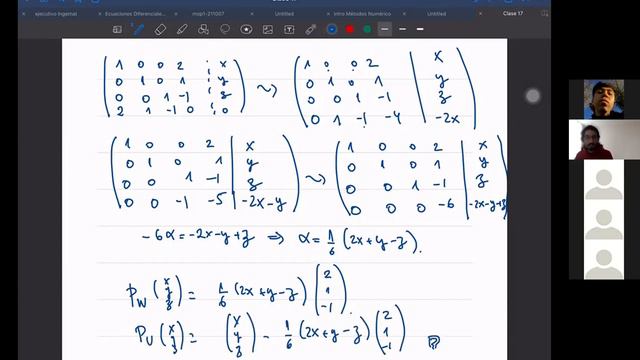 ejecutivo ingemat Ecuaciones Diferenciales... mop1-211007 Untitled Intro Métodos Numérico Untitled Clase 17
1 0 0 2 ⋮ x
0 1 0 1 ⋮ y
0 0 1 -1 ⋮ z
2 1 -1 0 ⋮ 0
⇝
1 0 0 2 | x
0 1 0 1 | y
0 0 1 -1 | z
0 1 -1 -4 | -2x
1 0 0 2 | x
0 1 0 1 | y
0 0 1 -1 | z
0 0 -1 -5 | -2x-y
⇝
1 0 0 2 | x
0 1 0 1 | y
0 0 1 -1 | z
0 0 0 -6 | -2x-y+z
-6α = -2x-y+z ⇒ α = 1/6 (2x+y-z).
P_W (x y z) = 1/6 (2x+y-z) (2 1 -1).
P_U (x y z) = (x y z) - 1/6 (2x+y-z) (2 1 -1)